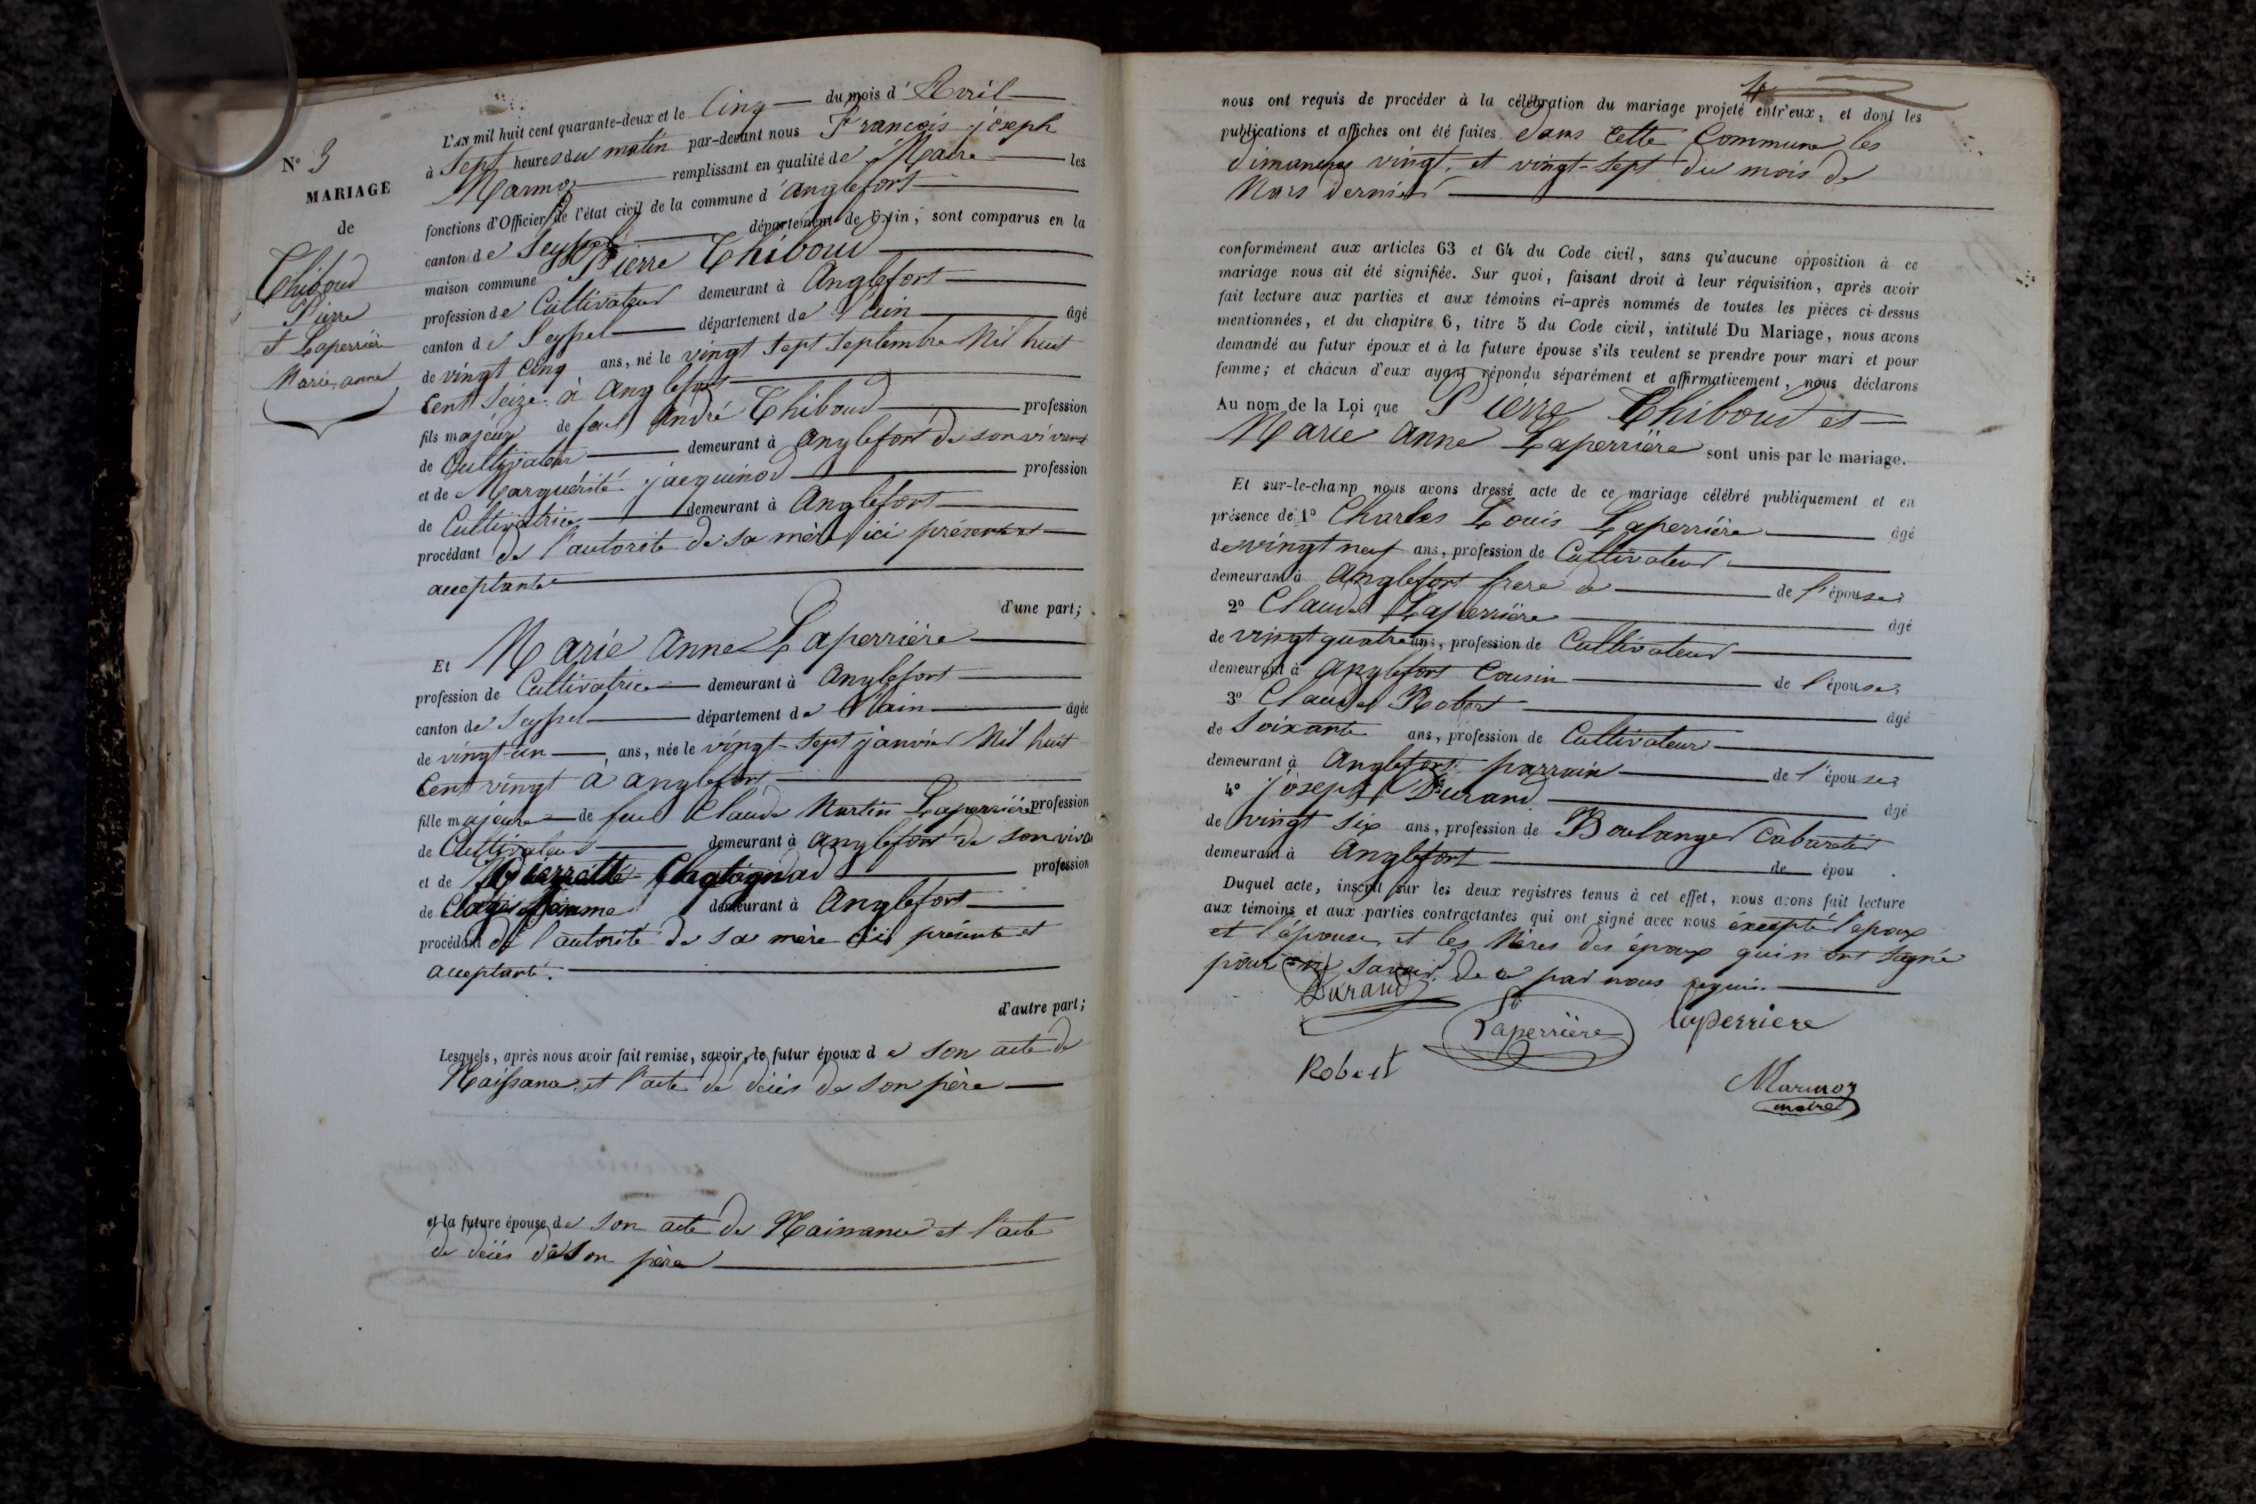 N° 3
MARIAGE
de
Thiboud
Pierre
et Laperrière
Marie anne
L'AN mil huit cent quarante-deux et le Cinq du mois d'Avril
à Sept heures du matin par-devant nous François joseph
Marmoz remplissant en qualité de Maire les
fonctions d'Officier de l'état civil de la commune d'anglefort
canton de Seyssel département de l'ain, sont comparus en la
maison commune Pierre Thiboud
profession de Cultivateur demeurant à Anglefort
canton de Seyssel département de l'ain âgé
de vingt cinq ans, né le vingt sept septembre Mil huit
Cent Seize à anglefort
fils majeur de feu André Thiboud profession
de Cultivateur demeurant à anglefort de son vivant
et de Marguérite jacquinod profession
de Cultivatrice demeurant à Anglefort
procédant de l'autorité de sa mère ici présente et
acceptante
d'une part;
Et Marie anne Laperrière
profession de Cultivatrice demeurant à anglefort
canton de Seyssel département de l'ain âgée
de vingt-un ans, née le vingt-sept janvier Mil huit
Cent vingt à anglefort
fille majeure de feu Claude Martin Laperrière profession
de Cultivateur demeurant à anglefort de son viva
et de Pierrette Chatagnad profession
de demeurant à Anglefort
procédant de l'autorité de sa mère ici présente et
acceptante.
d'autre part;
Lesquels, après nous avoir fait remise, savoir, le futur époux de son acte de
Naissance, et l'acte de décès de son père
et la future épouse de son acte de Naissance et l'acte
de décès de son père
4
nous ont requis de procéder à la célébration du mariage projeté entr'eux, et dont les
publications et affiches ont été faites dans cette Commune les
dimanches vingt, et vingt-sept du mois de
Mars dernier
conformément aux articles 63 et 64 du Code civil, sans qu'aucune opposition à ce
mariage nous ait été signifiée. Sur quoi, faisant droit à leur réquisition, après avoir
fait lecture aux parties et aux témoins ci-après nommés de toutes les pièces ci-dessus
mentionnées, et du chapitre 6, titre 5 du Code civil, intitulé Du Mariage, nous avons
demandé au futur époux et à la future épouse s'ils veulent se prendre pour mari et pour
femme; et chacun d'eux ayant répondu séparément et affirmativement, nous déclarons
Au nom de la Loi que Pierre Thiboud et
Marie anne Laperrière sont unis par le mariage.
Et sur-le-champ nous avons dressé acte de ce mariage célébré publiquement et en
présence de 1° Charles Louis Laperrière âgé
de vingt neuf ans, profession de Cultivateur
demeurant à Anglefort frere de de l'épouse;
2° Claude Laperrière âgé
de vingt quatre ans, profession de Cultivateur
demeurant à anglefort Cousin de l'épouse;
3° Claude Robert âgé
de Soixante ans, profession de Cultivateur
demeurant à Anglefort parrain de l'épouse;
4° joseph Durand âgé
de vingt six ans, profession de Boulanger Cabaretier
demeurant à Anglefort de épou .
Duquel acte, inscrit sur les deux registres tenus à cet effet, nous avons fait lecture
aux témoins et aux parties contractantes qui ont signé avec nous éxcepté l'époux
et l'épouse, et les Mères des époux qui n'ont signé
pour ne savoir de ce par nous requis.
Durand
Laperrière
laperriere
Robert
Marmoz
maire